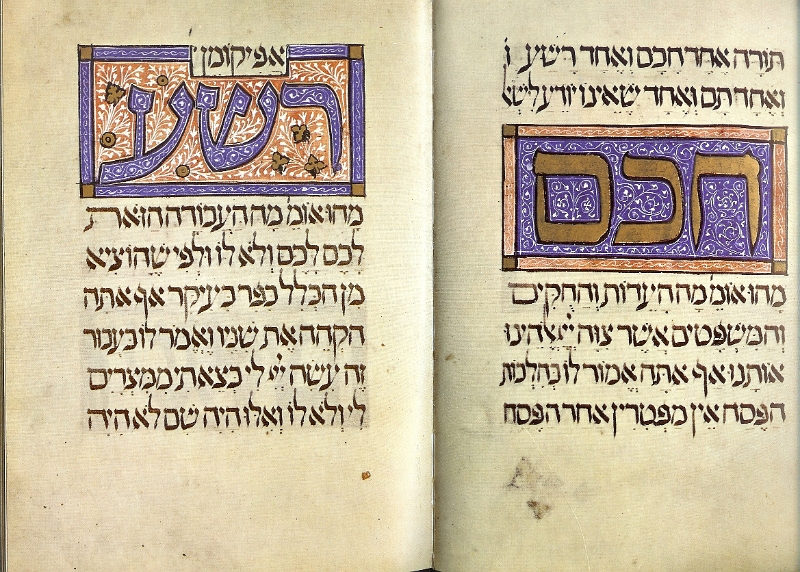 תורה אחד חכם ואחד רשע ו
ואחד תם ואחד שאינו יודע
חכם
מהו אומ' מה העדות והחקים
והמשפטים אשר צוה ייי אלהינו
אותנו אף אתה אמור לו כהלכות
הפסח אין מפטרין אחר הפסח
אפיקומן
רשע
מהו אומ' מה העבודה הזאת
לכם לכם ולא לו ולפי שהוציא
מן הכלל כפר בעיקר אף אתה
הקהה את שניו ואמר לו בעבור
זה עשה ייי לי בצאתי ממצרים
לי ולא לו ואלו היה שם לא היה